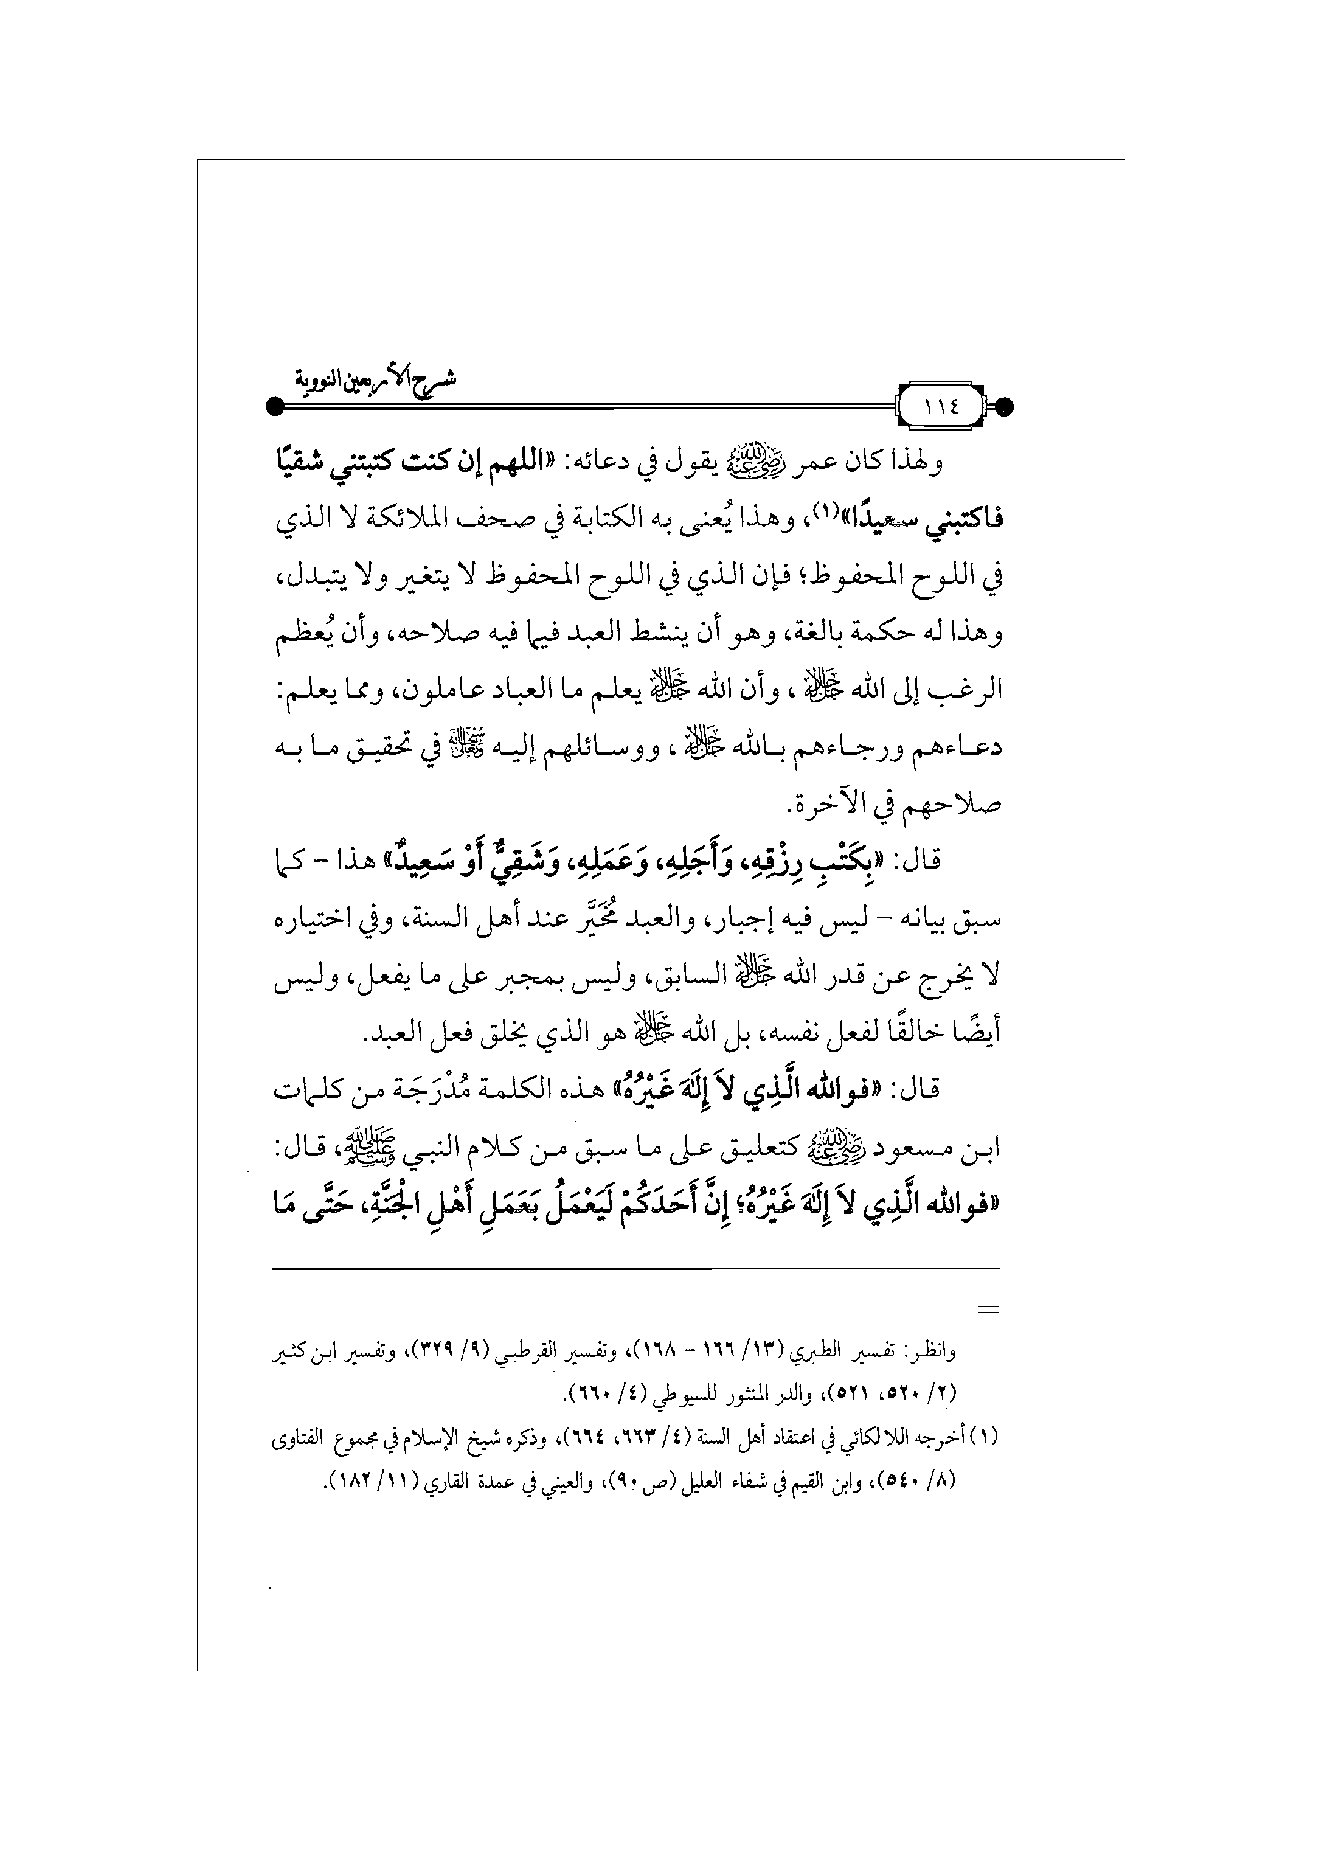 شرح الأربعين النووية
١١٤
ولهذا كان عمر رضي الله عنه يقول في دعائه: «اللهم إن كنت كتبتني شقيًا
فاكتبني سعيدًا»(١)، وهذا يُعنى به الكتابة في صحف الملائكة لا الذي
في اللوح المحفوظ؛ فإن الذي في اللوح المحفوظ لا يتغير ولا يتبدل،
وهذا له حكمة بالغة، وهو أن ينشط العبد فيما فيه صلاحه، وأن يُعظم
الرغب إلى الله ﷻ، وأن الله ﷻ يعلم ما العباد عاملون، ومما يعلم:
دعاءهم ورجاءهم بالله ﷻ، ووسائلهم إليه في تحقيق ما به
صلاحهم في الآخرة.
قال: «بِكَتْبِ رِزْقِهِ، وَأَجَلِهِ، وَعَمَلِهِ، وَشَقِيٌّ أَوْ سَعِيدٌ» هذا - كما
سبق بيانه - ليس فيه إجبار، والعبد مُخَيَّر عند أهل السنة، وفي اختياره
لا يخرج عن قدر الله ﷻ السابق، وليس بمجبر على ما يفعل، وليس
أيضًا خالقًا لفعل نفسه، بل الله ﷻ هو الذي يخلق فعل العبد.
قال: «فوالله الَّذِي لاَ إِلَهَ غَيْرُهُ» هذه الكلمة مُدْرَجَة من كلمات
ابن مسعود رضي الله عنه كتعليق على ما سبق من كلام النبي ﷺ، قال:
«فوالله الَّذِي لاَ إِلَهَ غَيْرُهُ؛ إِنَّ أَحَدَكُمْ لَيَعْمَلُ بَعَمَلِ أَهْلِ الْجَنَّةِ، حَتَّى مَا
=
وانظر: تفسير الطبري (١٣/ ١٦٦ - ١٦٨)، وتفسير القرطبي (٩/ ٣٢٩)، وتفسير ابن كثير
(٢/ ٥٢٠، ٥٢١)، والدر المنثور للسيوطي (٤/ ٦٦٠).
(١) أخرجه اللالكائي في اعتقاد أهل السنة (٤/ ٦٦٣، ٦٦٤)، وذكره شيخ الإسلام في مجموع الفتاوى
(٨/ ٥٤٠)، وابن القيم في شفاء العليل (ص ٩٠)، والعيني في عمدة القاري (١١/ ١٨٢).